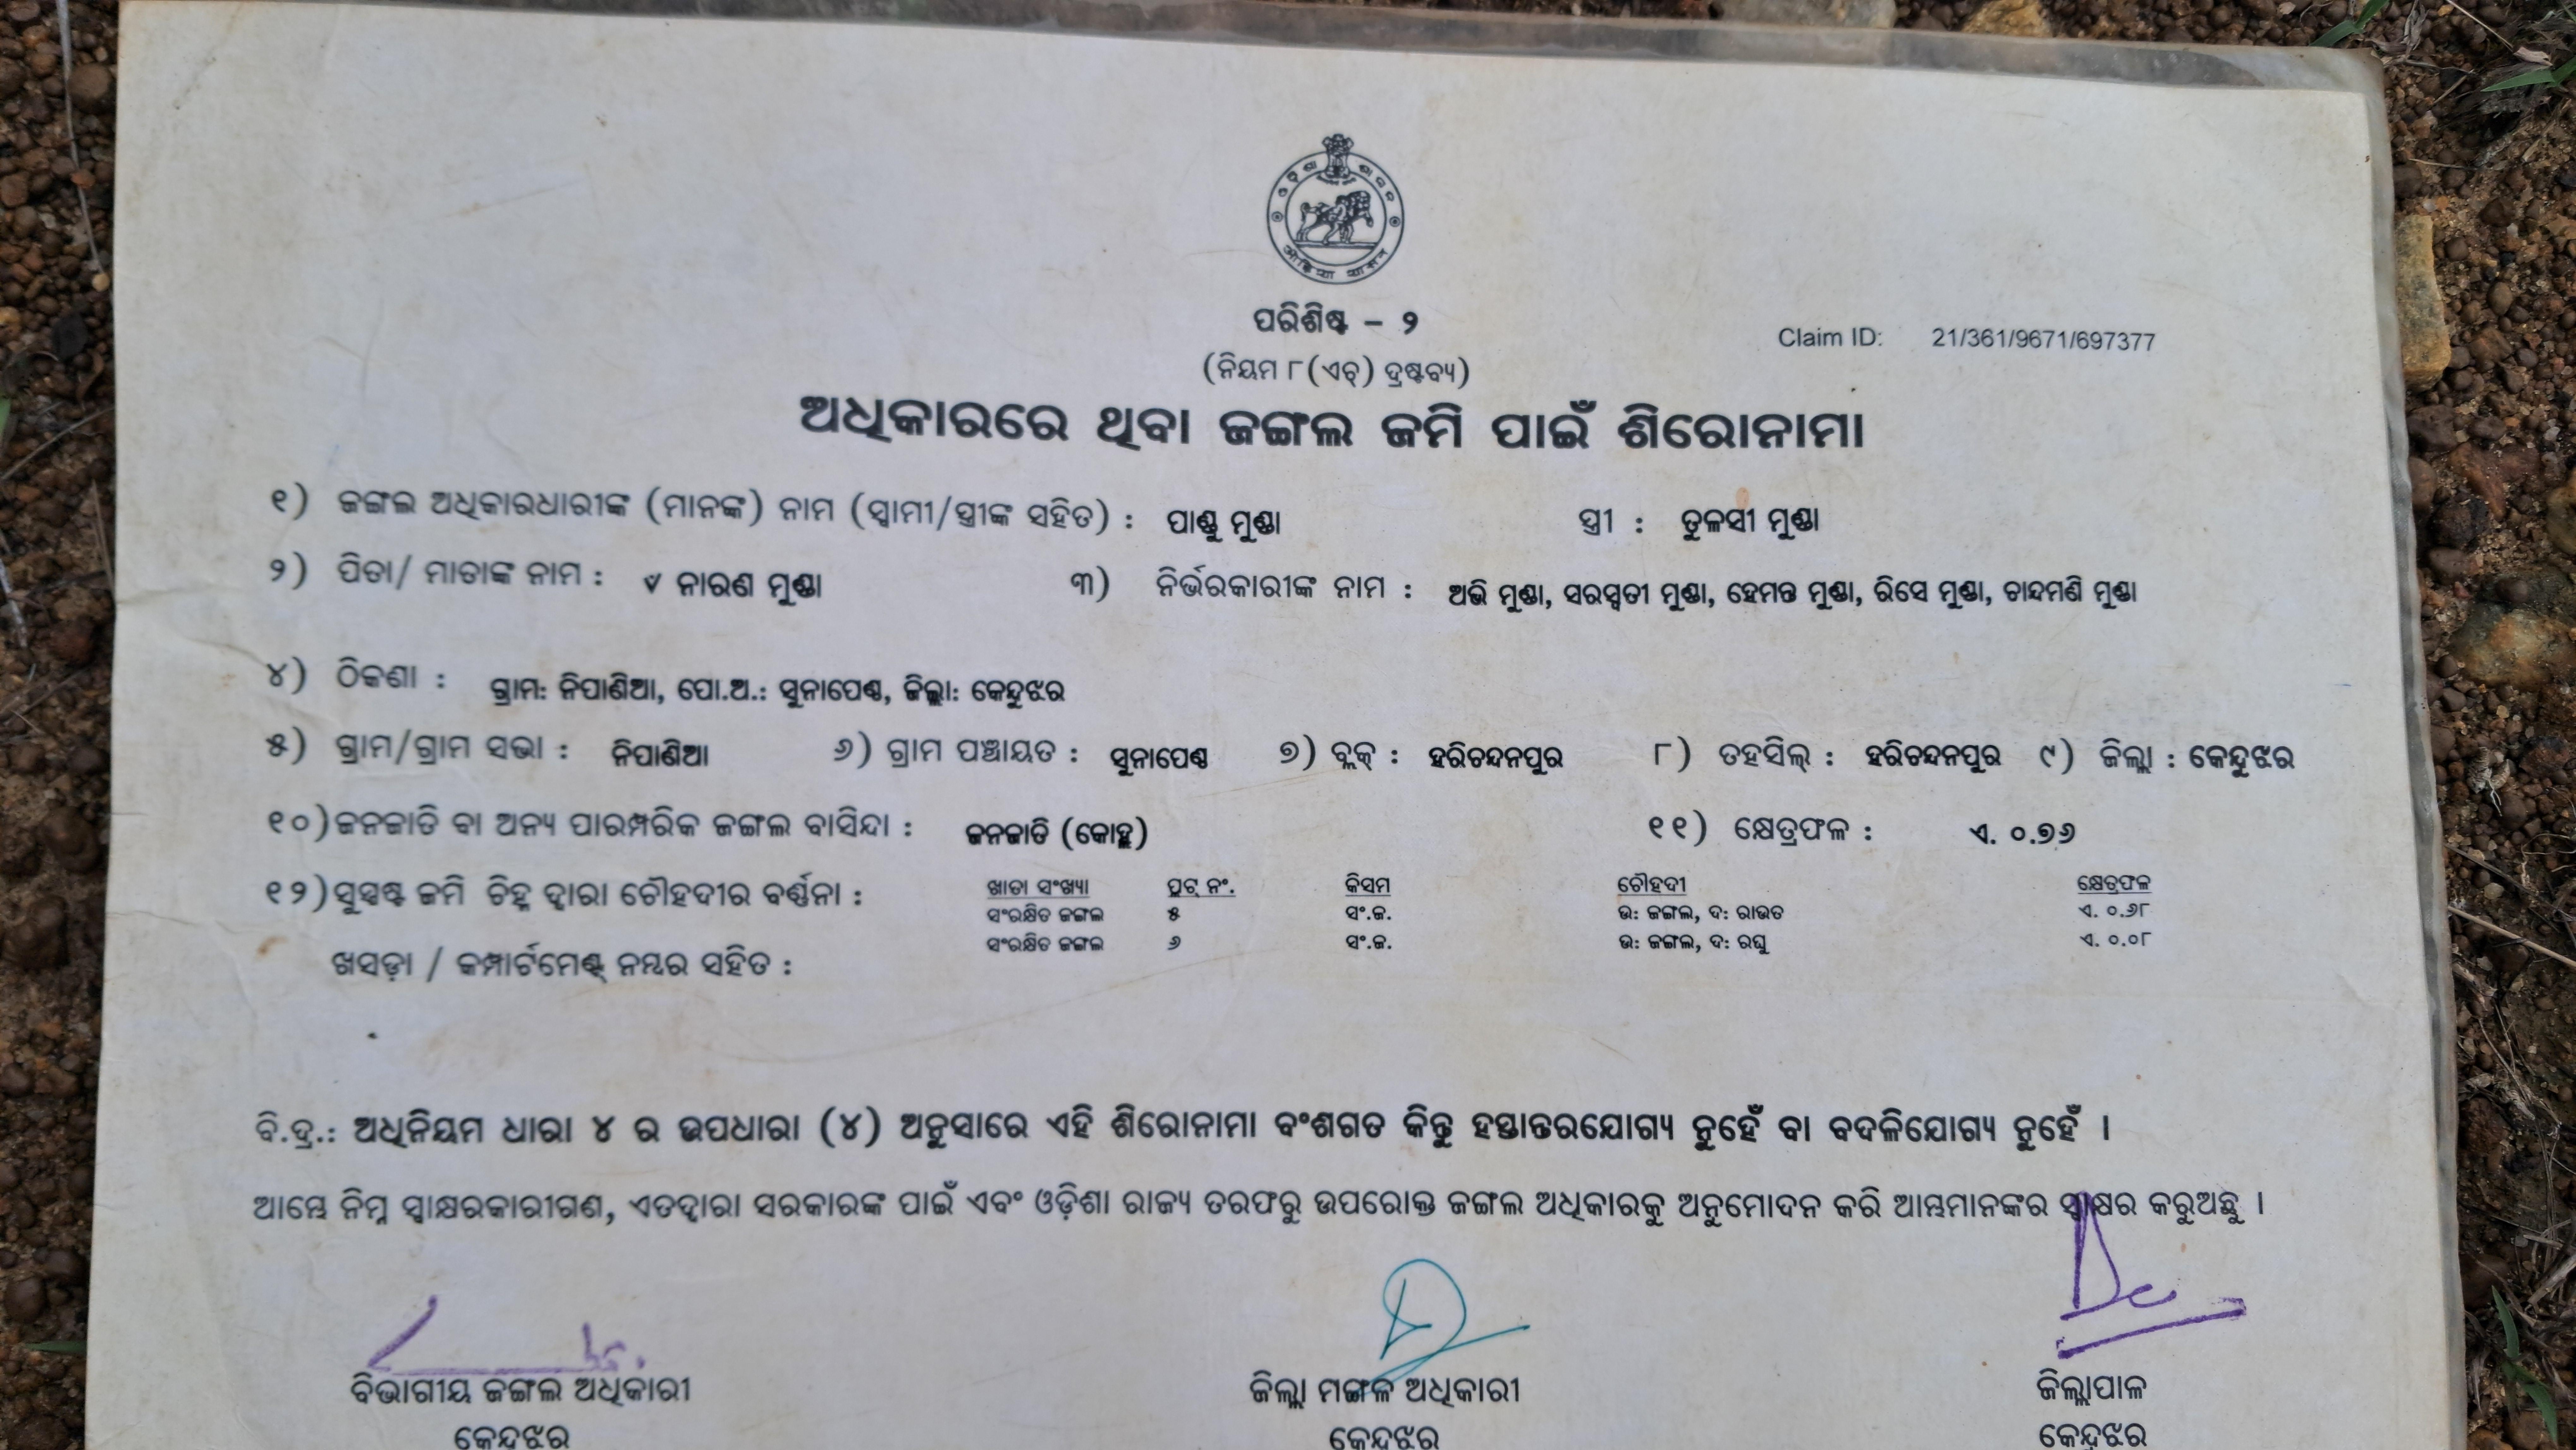 ପରିଶିଷ୍ଟ – ୨
Claim ID: 21/361/9671/697377
(ନିୟମ ୮(ଏଚ୍) ଦ୍ରଷ୍ଟବ୍ୟ)
ଅଧିକାରରେ ଥିବା ଜଙ୍ଗଲ ଜମି ପାଇଁ ଶିରୋନାମା
୧) ଜଙ୍ଗଲ ଅଧିକାରଧାରୀଙ୍କ (ମାନଙ୍କ) ନାମ (ସ୍ୱାମୀ/ସ୍ତ୍ରୀଙ୍କ ସହିତ) : ପାଣ୍ଡୁ ମୁଣ୍ଡା ସ୍ତ୍ରୀ : ତୁଳସୀ ମୁଣ୍ଡା
୨) ପିତା/ ମାତାଙ୍କ ନାମ : ନାରଣ ମୁଣ୍ଡା ୩) ନିର୍ଭରକାରୀଙ୍କ ନାମ : ଅଭି ମୁଣ୍ଡା, ସରସ୍ୱତୀ ମୁଣ୍ଡା, ହେମନ୍ତ ମୁଣ୍ଡା, ରିସେ ମୁଣ୍ଡା, ଚାନ୍ଦମଣି ମୁଣ୍ଡା
୪) ଠିକଣା : ଗ୍ରାମ: ନିପାଣିଆ, ପୋ.ଅ.: ସୁନାପେଣ୍ଠ, ଜିଲ୍ଲା: କେନ୍ଦୁଝର
୫) ଗ୍ରାମ/ଗ୍ରାମ ସଭା : ନିପାଣିଆ ୬) ଗ୍ରାମ ପଞ୍ଚାୟତ : ସୁନାପେଣ୍ଠ ୭) ବ୍ଲକ୍ : ହରିଚନ୍ଦନପୁର ୮) ତହସିଲ୍ : ହରିଚନ୍ଦନପୁର ୯) ଜିଲ୍ଲା : କେନ୍ଦୁଝର
୧୦) ଜନଜାତି ବା ଅନ୍ୟ ପାରମ୍ପରିକ ଜଙ୍ଗଲ ବାସିନ୍ଦା : ଜନଜାତି (କୋହ୍ଲ) ୧୧) କ୍ଷେତ୍ରଫଳ : ଏ. ୦.୭୬
୧୨) ସୁସ୍ପଷ୍ଟ ଜମି ଚିହ୍ନ ଦ୍ୱାରା ଚୌହଦୀର ବର୍ଣ୍ଣନା : ଖାତା ସଂଖ୍ୟା ପ୍ଲଟ୍ ନଂ. କିସମ ଚୌହଦୀ କ୍ଷେତ୍ରଫଳ
ସଂରକ୍ଷିତ ଜଙ୍ଗଲ ୫ ସଂ.ଜ. ଉ: ଜଙ୍ଗଲ, ଦ: ରାଉତ ଏ. ୦.୬୮
ସଂରକ୍ଷିତ ଜଙ୍ଗଲ ୬ ସଂ.ଜ. ଉ: ଜଙ୍ଗଲ, ଦ: ରଘୁ ଏ. ୦.୦୮
ଖସଡ଼ା / କମ୍ପାର୍ଟମେଣ୍ଟ୍ ନମ୍ବର ସହିତ :
ବି.ଦ୍ର.: ଅଧିନିୟମ ଧାରା ୪ ର ଉପଧାରା (୪) ଅନୁସାରେ ଏହି ଶିରୋନାମା ବଂଶଗତ କିନ୍ତୁ ହସ୍ତାନ୍ତରଯୋଗ୍ୟ ନୁହେଁ ବା ବଦଳିଯୋଗ୍ୟ ନୁହେଁ ।
ଆମ୍ଭେ ନିମ୍ନ ସ୍ୱାକ୍ଷରକାରୀଗଣ, ଏତଦ୍ୱାରା ସରକାରଙ୍କ ପାଇଁ ଏବଂ ଓଡ଼ିଶା ରାଜ୍ୟ ତରଫରୁ ଉପରୋକ୍ତ ଜଙ୍ଗଲ ଅଧିକାରକୁ ଅନୁମୋଦନ କରି ଆମ୍ଭମାନଙ୍କର ସ୍ୱାକ୍ଷର କରୁଅଛୁ ।
ବିଭାଗୀୟ ଜଙ୍ଗଲ ଅଧିକାରୀ ଜିଲ୍ଲା ମଙ୍ଗଳ ଅଧିକାରୀ ଜିଲ୍ଲାପାଳ
କେନ୍ଦୁଝର କେନ୍ଦୁଝର କେନ୍ଦୁଝର